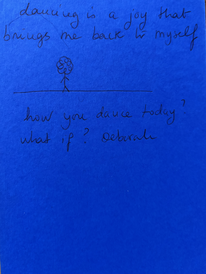 dancing is a joy that
brings me back to myself
how you dance today?
what if?